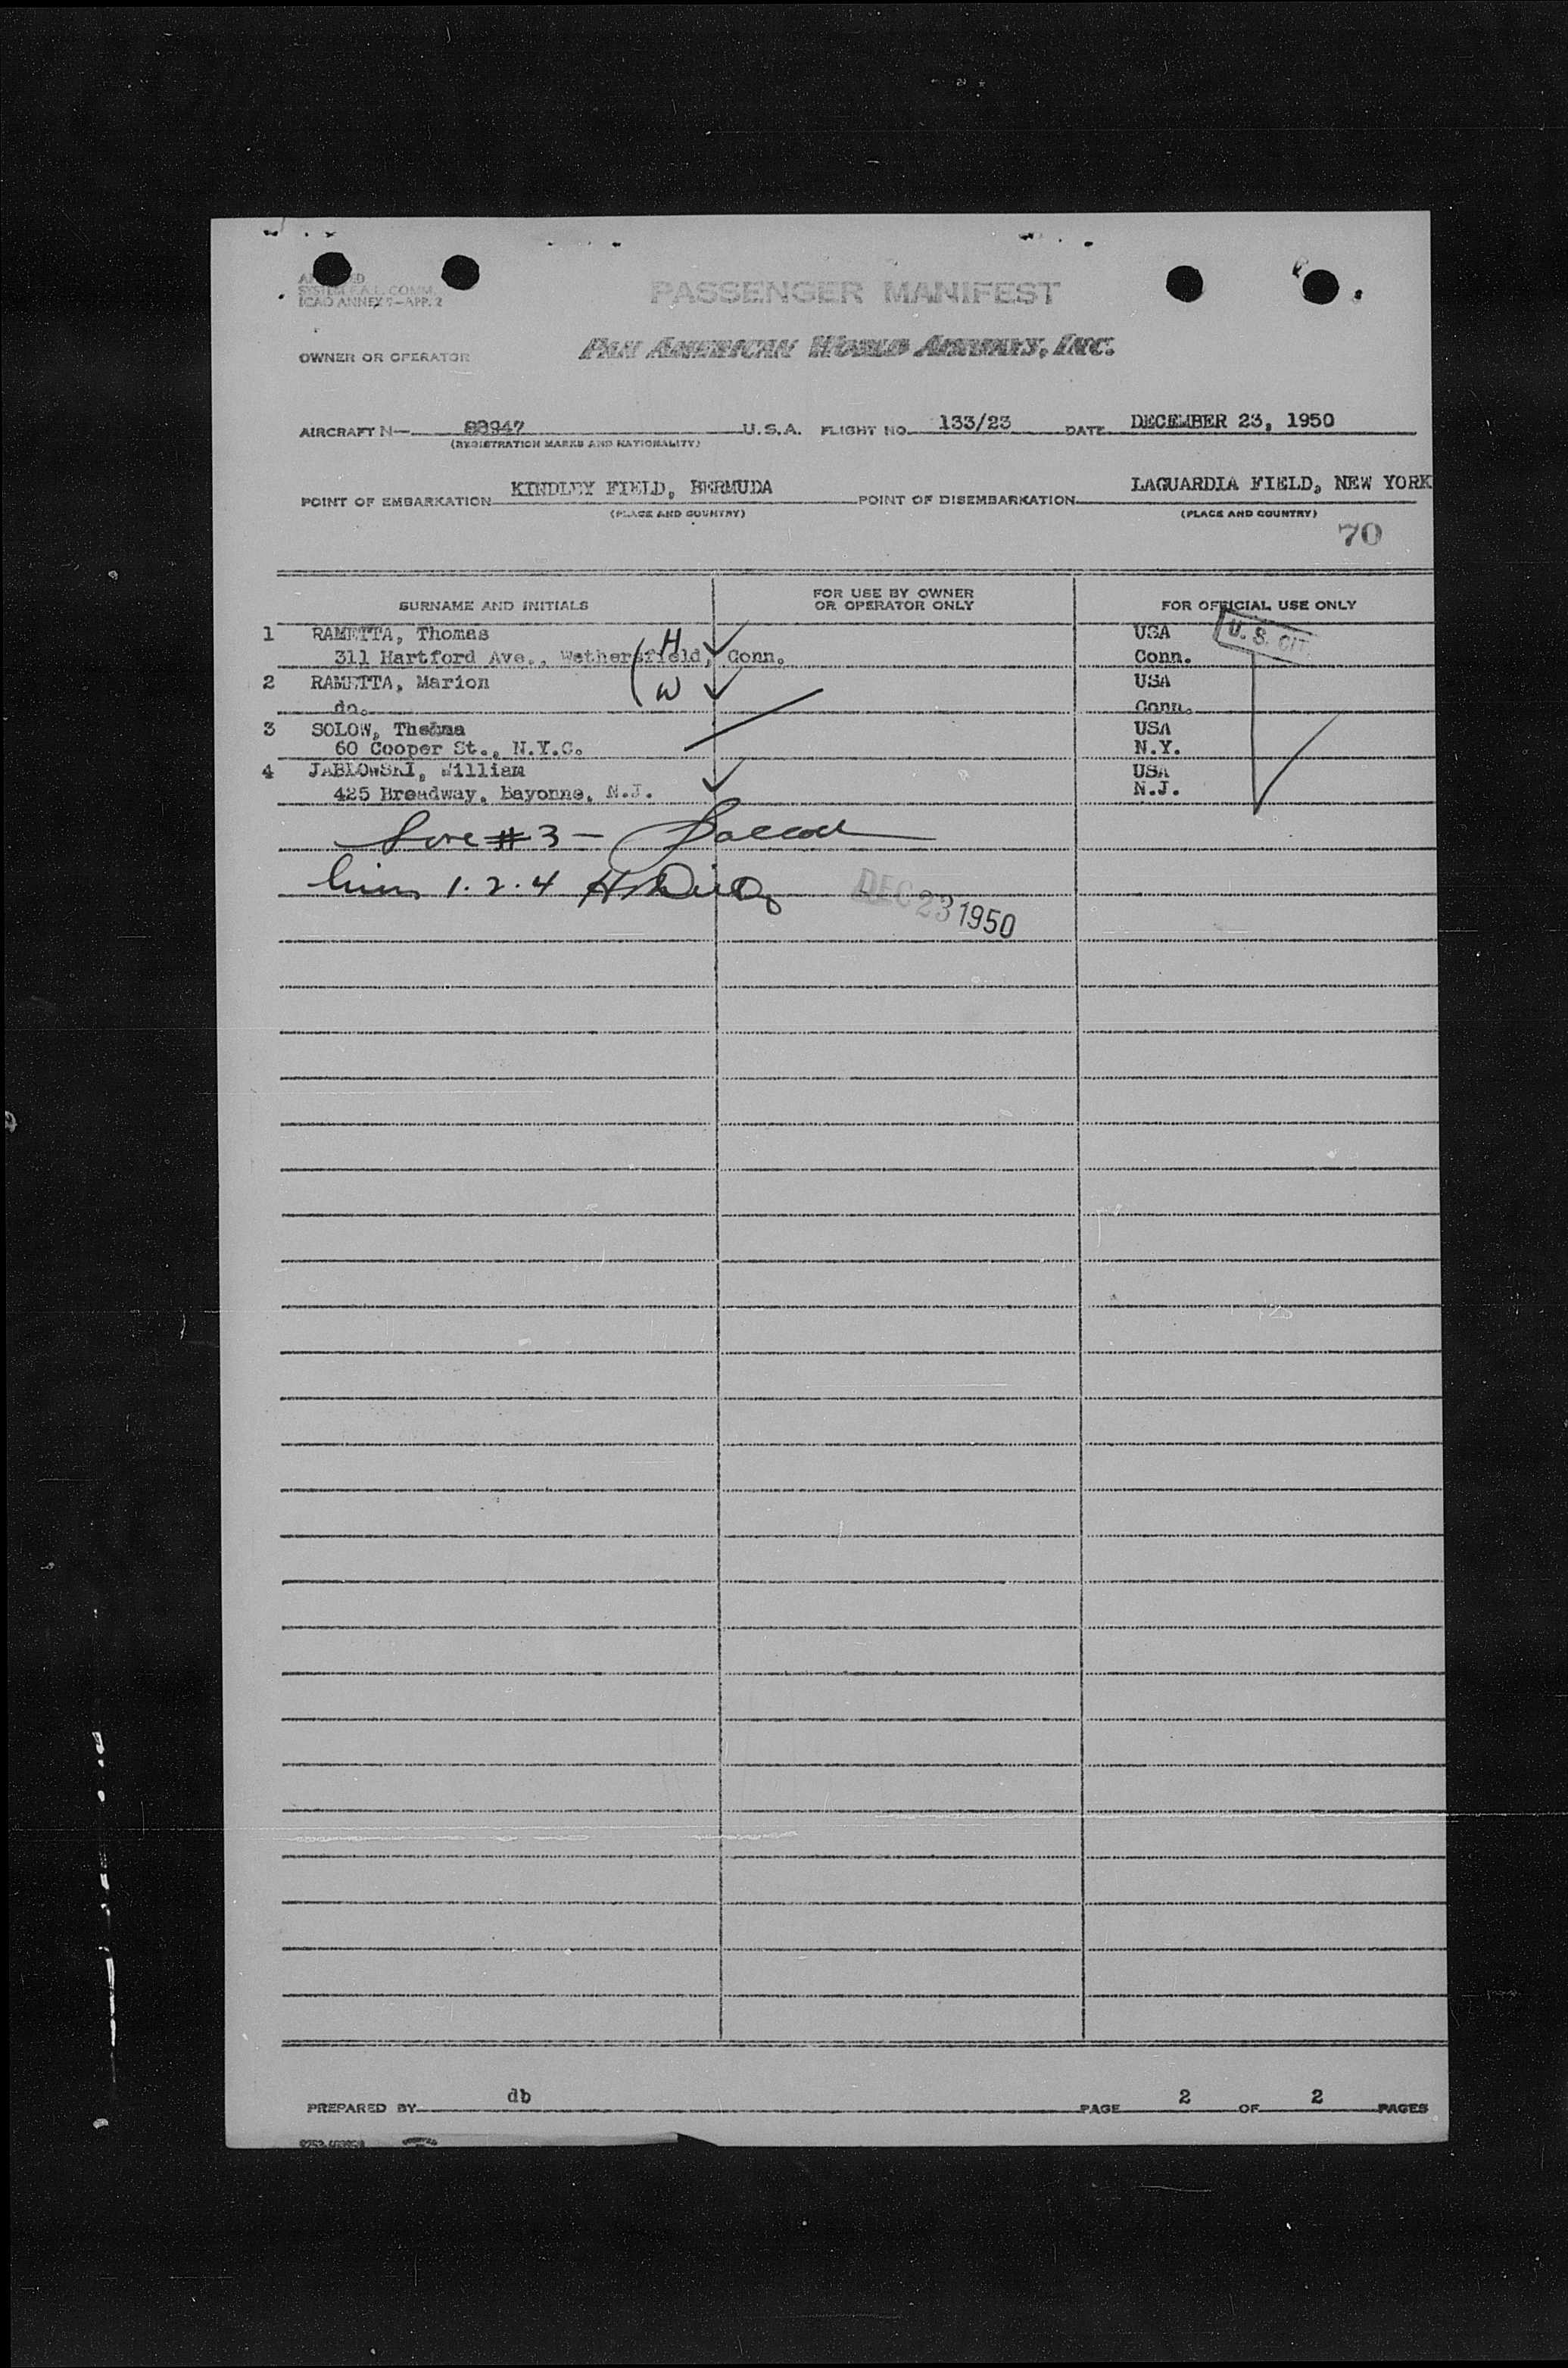 SYSTEM F.A.L. COMM.
ICAO ANNEX 9-APP. 2
PASSENGER MANIFEST
OWNER OR OPERATOR PAN AMERICAN WORLD AIRWAYS, INC.
AIRCRAFT N— 88947 U.S.A. FLIGHT NO. 133/23 DATE DECEMBER 23, 1950
(REGISTRATION MARKS AND NATIONALITY)
POINT OF EMBARKATION KINDLEY FIELD, BERMUDA POINT OF DISEMBARKATION LAGUARDIA FIELD, NEW YORK
(PLACE AND COUNTRY) (PLACE AND COUNTRY)
70
SURNAME AND INITIALS FOR USE BY OWNER OR OPERATOR ONLY FOR OFFICIAL USE ONLY
1 RAMETTA, Thomas H USA U. S. CIT.
311 Hartford Ave., Wethersfield, Conn. Conn.
2 RAMETTA, Marion W USA
do. Conn.
3 SOLOW, Thelma USA
60 Cooper St., N.Y.C. N.Y.
4 JABLOWSKI, William USA
425 Broadway, Bayonne, N.J. N.J.
#3 —
1. 2. 4
DEC 23 1950
PREPARED BY db PAGE 2 OF 2 PAGES